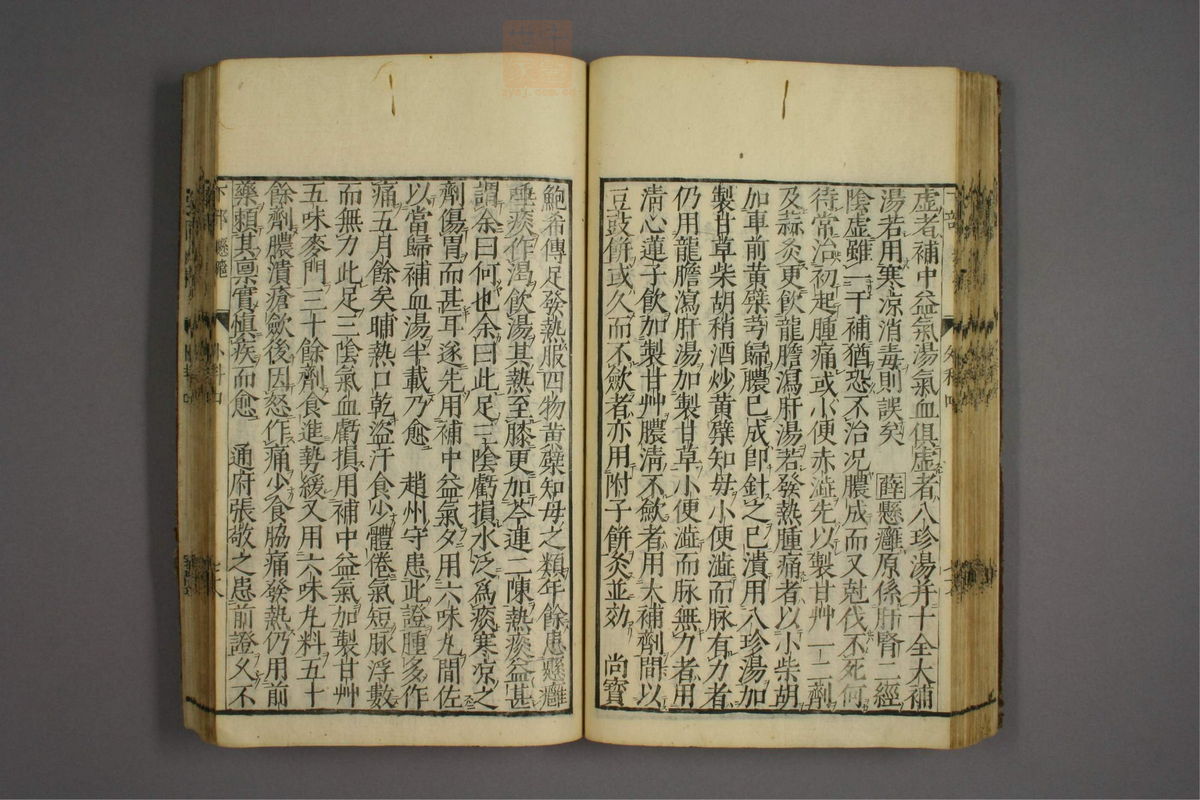 虛者補中益氣湯氣血俱虛者八珍湯幷十全大補
湯若用寒涼消毒則誤矣　薛懸癰原係肝腎二經
陰虛雖一于補猶恐不治况膿成而又尅伐不死何
待常治初起腫痛或小便赤澁先以製甘艸一二劑
及蒜灸更飲龍膽瀉肝湯若發熱腫痛者以小柴胡
加車前黃蘗芎歸膿已成卽針之已潰用八珍湯加
製甘草柴胡稍酒炒黃蘗知毋小便澁而脉有力者
仍用龍膽瀉肝湯加製甘草小便澁而脉無力者用
淸心蓮子飲加製甘艸膿淸不歛者用大補劑間以
豆豉餅或久而不歛者亦用附子餅灸並効　尚寶
鮑希傳足發熱服四物黃蘗知毋之類年餘患懸癰
唾痰作渴飲湯其熱至膝更加芩連二陳熱痰益甚
謂余曰何也余曰此足三陰虧損水泛爲痰寒凉之
劑傷胃而甚耳遂先用補中益氣夕用六味丸間佐
以當歸補血湯半載乃愈　趙州守患此證腫多作
痛五月餘矣晡熱口乾盜汗食少體倦氣短脉浮數
而無力此足三陰氣血虧損用補中益氣加製甘艸
五味麥門三十餘劑食進勢緩又用六味丸料五十
餘劑膿潰瘡歛後因怒作痛少食脇痛發熱仍用前
藥賴其稟實愼疾而愈　通府張敬之患前證久不
下部　懸癰